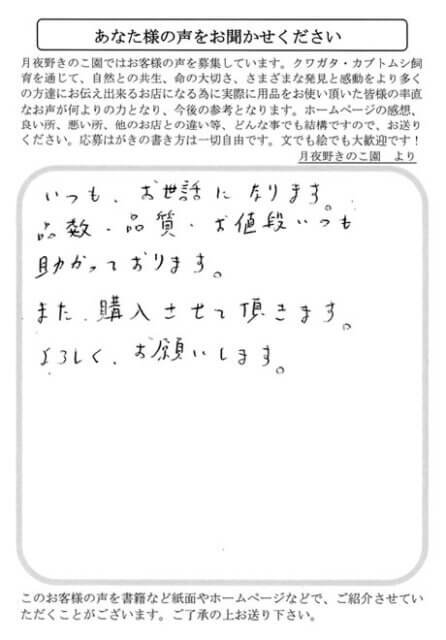 あなた様の声をお聞かせください
月夜野きのこ園ではお客様の声を募集しています。クワガタ・カブトムシ飼
育を通じて、自然との共生、命の大切さ、さまざまな発見と感動をより多く
の方達にお伝え出来るお店になる為に実際に用品をお使い頂いた皆様の率直
なお声が何よりの力となり、今後の参考となります。ホームページの感想、
良い所、悪い所、他のお店との違い等、どんな事でも結構ですので、お送り
ください。応募はがきの書き方は一切自由です。文でも絵でも大歓迎です！
月夜野きのこ園　より
いつも、お世話になります。
品数・品質・お値段いつも
助かっております。
また、購入させて頂きます。
よろしく、お願いします。
このお客様の声を書籍など紙面やホームページなどで、ご紹介させてい
ただくことがございます。ご了承の上お送り下さい。